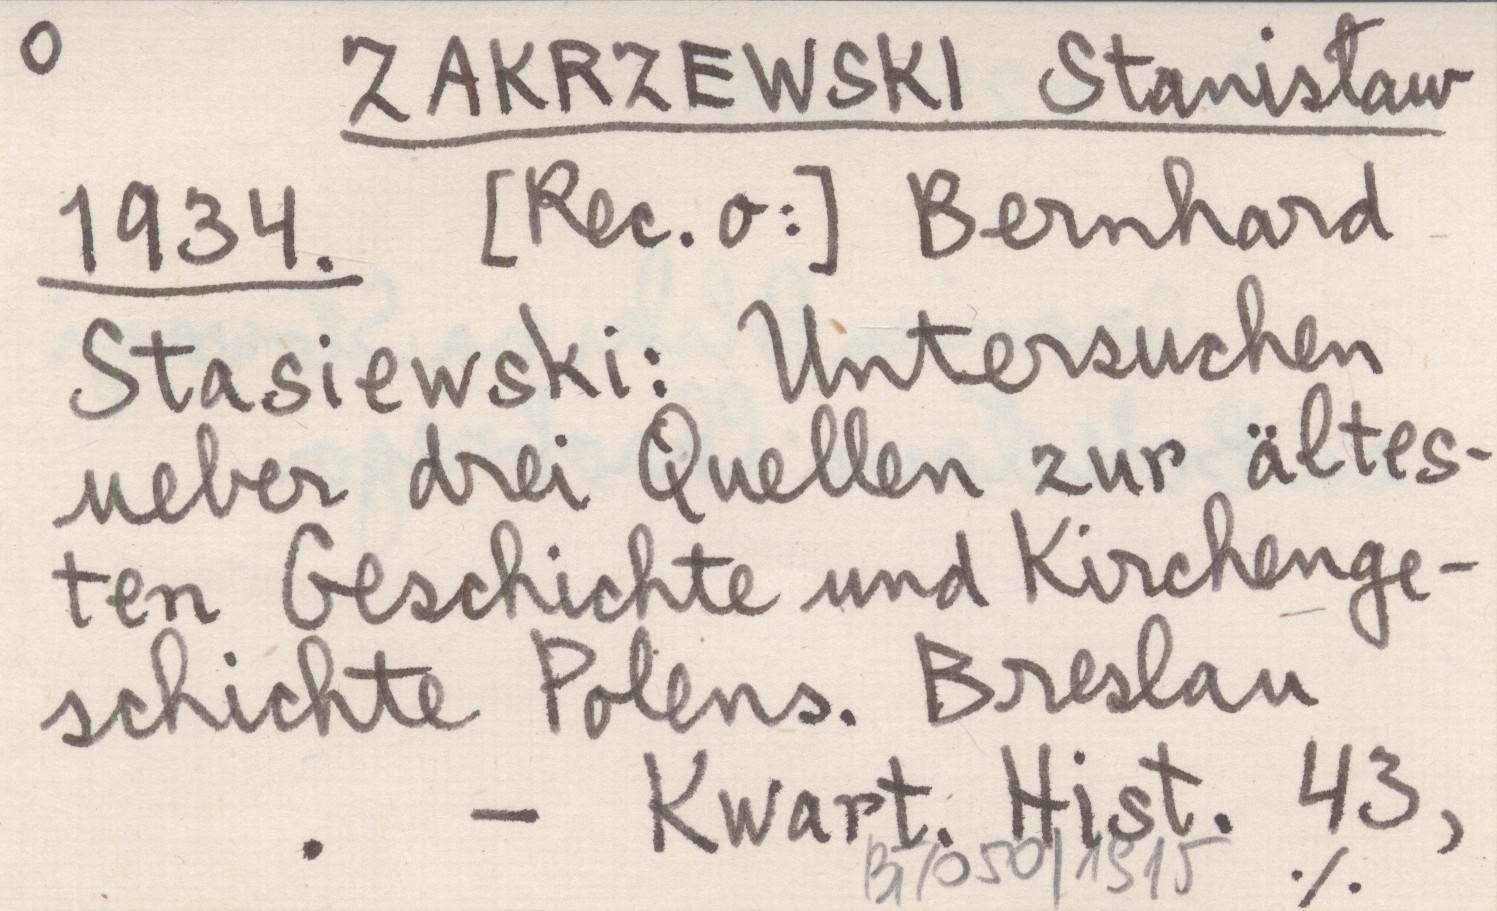 O ZAKRZEWSKI Stanisław
1934. [Rec. o:] Bernhard
Stasiewski: Untersuchen
ueber drei Quellen zur ältes-
ten Geschichte und Kirchenge-
schichte Polens. Breslau
. – Kwart. Hist. 43,
050/1515 ./.